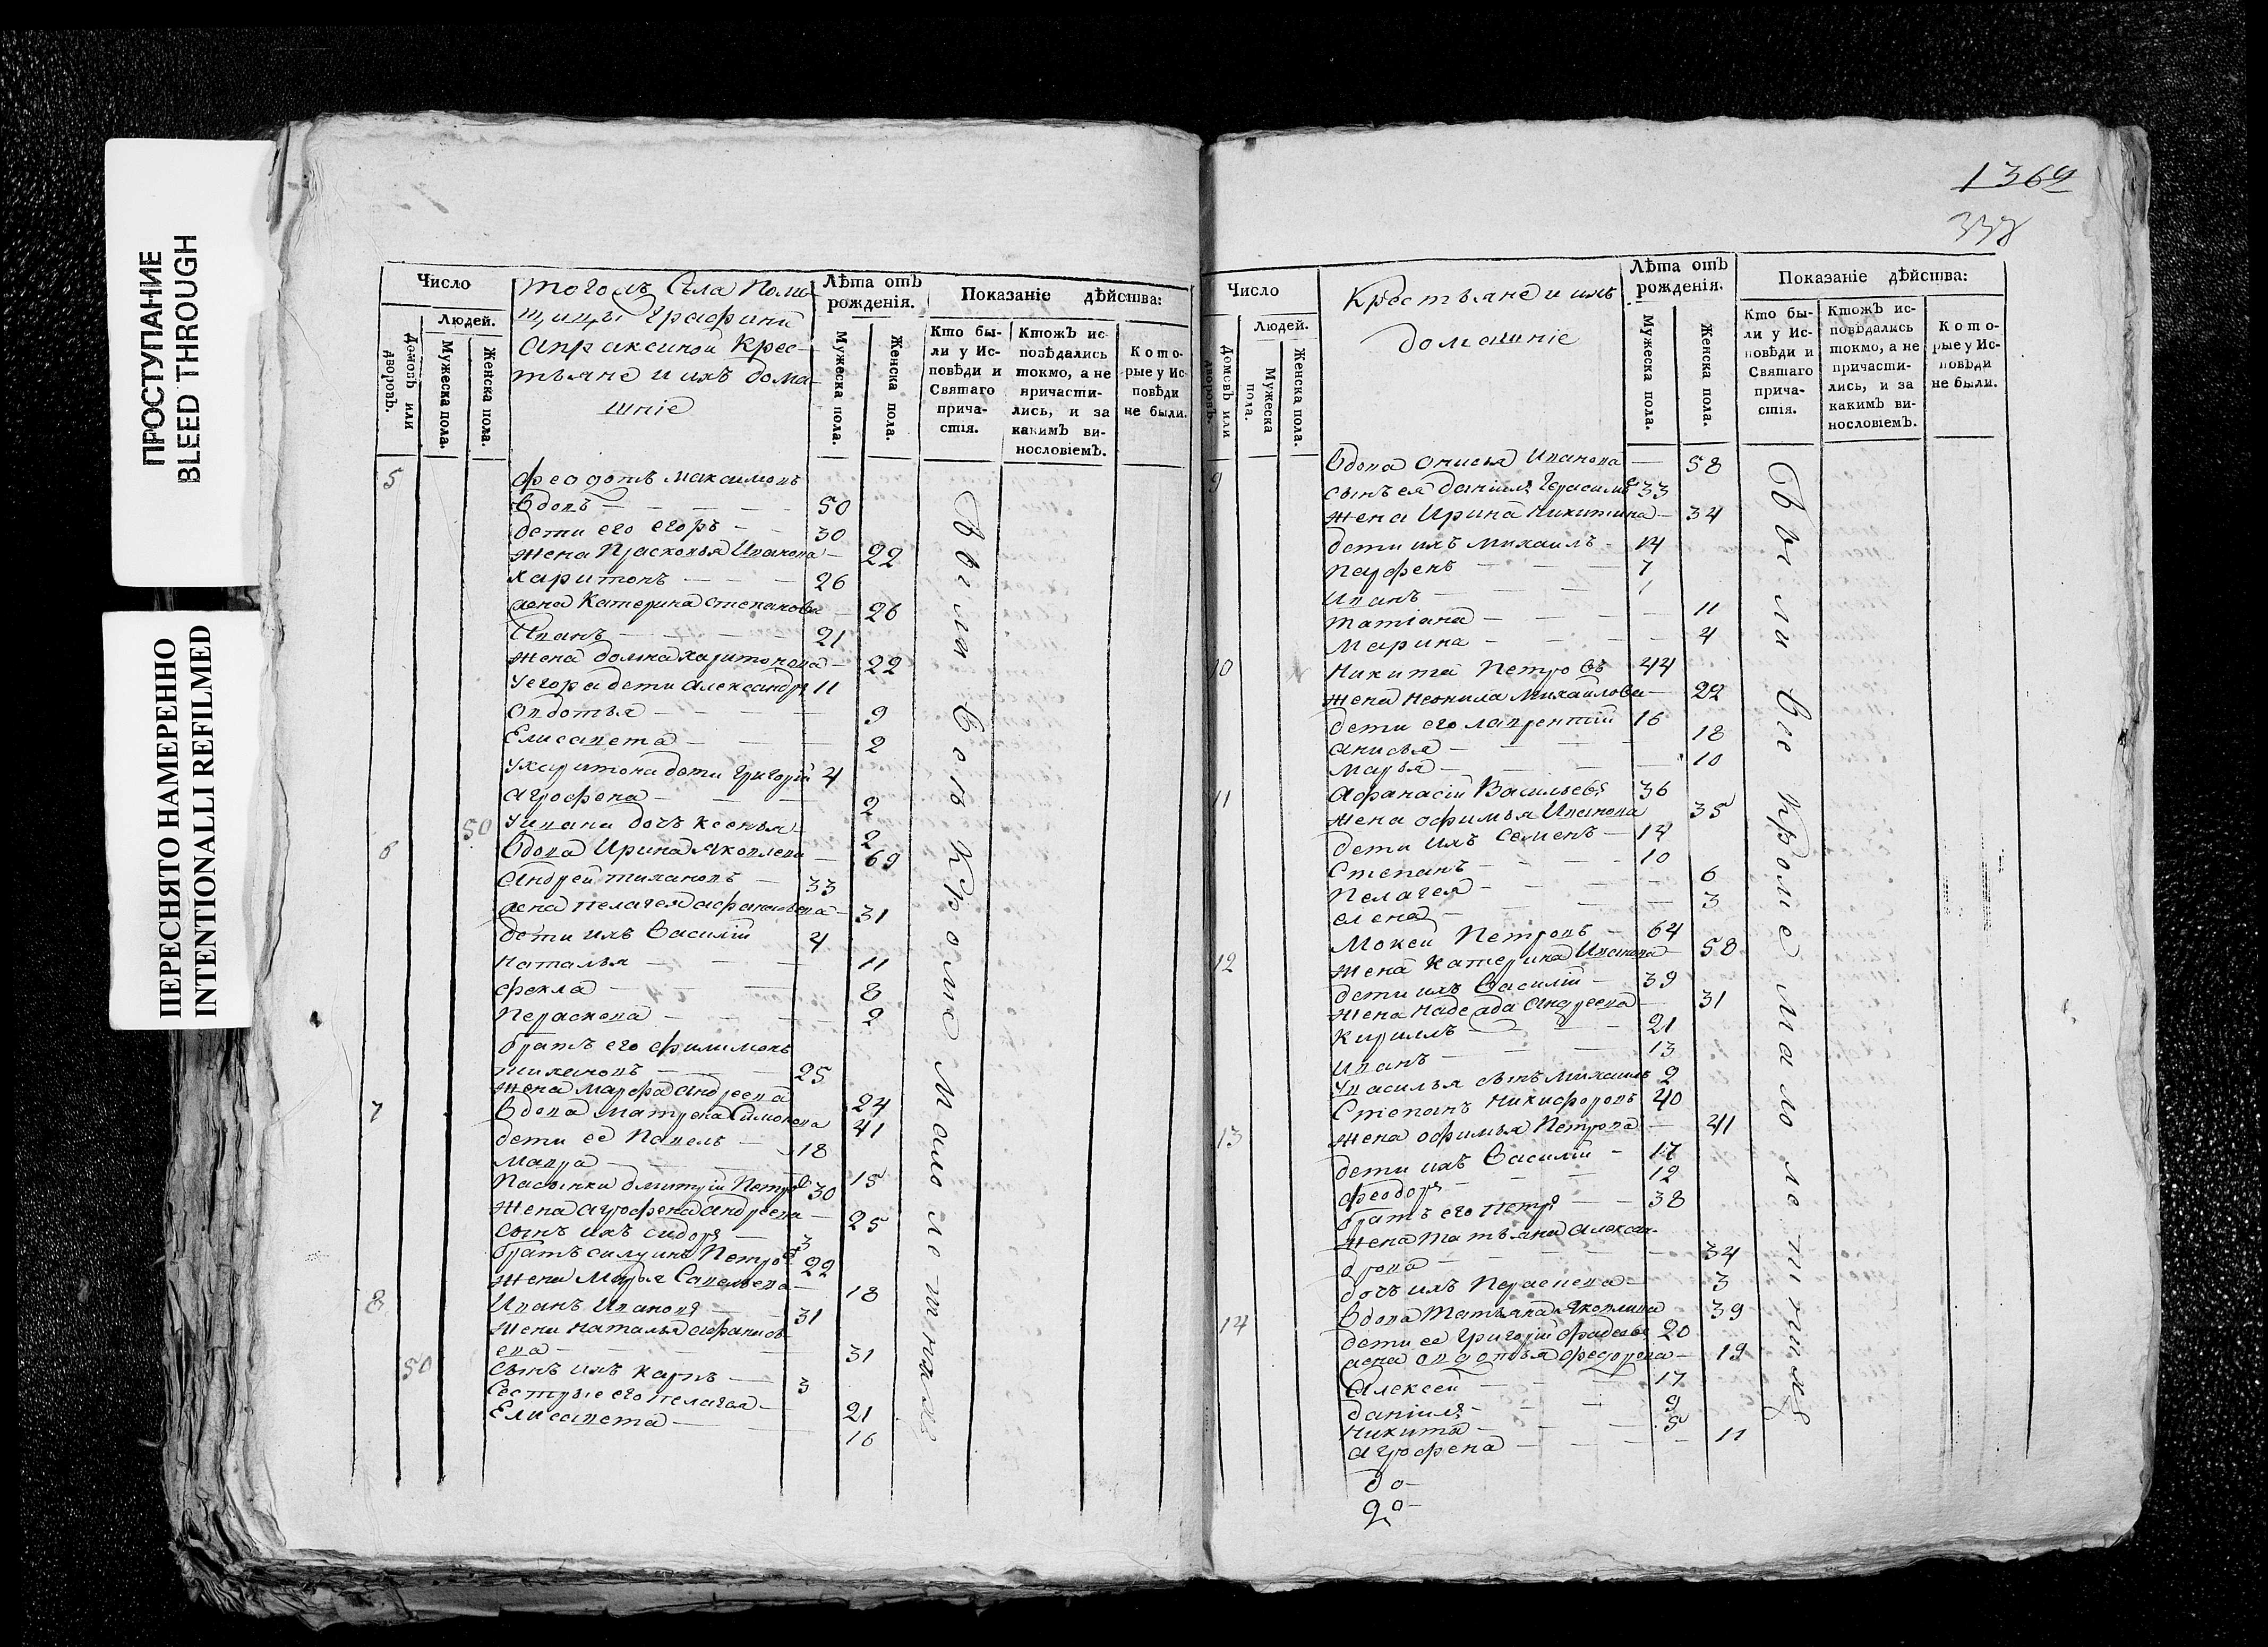 ПРОСТУПАНИЕ
BLEED THROUGH
ПЕРЕСНЯТО НАМЕРЕННО
INTENTIONALLI REFILMED
Число
Людей.
Домовъ или дворовъ.
Мужеска пола.
Женска пола.
тогожъ Села Поме-
щицы Графини
Апраксиной Крес-
тьяне и ихъ дома-
шніе
Лѣта отъ рожденія.
Мужеска пола.
Женска пола.
Показаніе дѣйства:
Кто бы-
ли у Ис-
повѣди и
Святаго
прича-
стія.
Ктожъ ис-
повѣдались
токмо, а не
причасти-
лись, и за
какимъ ви-
нословіемъ.
Кото-
рые у Ис-
повѣди
не были.
5 Феодотъ Максимовъ
вдовъ 50
дети его Егоръ 30
жена Прасковья Иванова 22
Харитонъ 26
жена Катерина Степанова 26
Иванъ 21
жена домна Харитонова 22
У Егора дети Александръ 11
Овдотья 9
Елисавета 2
У Харитона дети Григорій 4
Агрофена 2
50 У Ивана дочь Ксенья 2
6 вдова Ирина Яковлева 69
Андрей Тихановъ 33
жена Пелагея Афанасьева 31
дети ихъ Василій 4
Наталья 11
Фекла 8
Пераскева 2
братъ его Филимонъ
Тихановъ 25
жена Марфа Андреева 24
7 вдова Матрена Симонова 41
дети ее Павелъ 18
Мавра 15
Пасынки дмитрій Петровъ 30
жена Агрофена Андреева 25
сынъ ихъ Сидоръ 3
братъ Силуянъ Петровъ 22
жена Марья Савельева 18
8 Иванъ Ивановъ 31
жена Наталья Афанась-
ева 31
50 сынъ ихъ Карпъ 3
Сестры его Пелагея 21
Елисавета 16
Были Всѣ Кроме Малолетнихъ
1369
338
Число
Людей.
Домовъ или дворовъ.
Мужеска пола.
Женска пола.
Крестьяне и ихъ
домашніе
Лѣта отъ рожденія.
Мужеска пола.
Женска пола.
Показаніе дѣйства:
Кто бы-
ли у Ис-
повѣди и
Святаго
прича-
стія.
Ктожъ ис-
повѣдались
токмо, а не
причасти-
лись, и за
какимъ ви-
нословіемъ.
Кото-
рые у Ис-
повѣди
не были.
9 Вдова Онисья Иванова 58
сынъ ея даніилъ Герасимъ 33
жена Ирина Никитина 34
дети ихъ Михаилъ 14
Парфенъ 7
Иванъ 1
Татіана 11
Марина 4
10 Никита Петровъ 44
жена Неонила Михаилова 22
дети его Лаврентій 16
Анисья 18
Марья 10
11 Афанасій Васильевъ 36
жена Офимья Иванова 35
дети ихъ Семенъ 14
Степанъ 10
Пелагея 6
Елена 3
12 Мокей Петровъ 64
жена Катерина Иванова 58
дети ихъ Василій 39
жена Надежда Андреева 31
Кирилъ 21
Иванъ 13
У Василья сынъ Михаилъ 2
13 Степанъ Никифоровъ 40
жена Офимья Петрова 41
дети ихъ Василій 17
Феодоръ 12
братъ его Петръ 38
жена Татьяна Алексан-
дрова 34
дочь ихъ Пераскева 3
14 вдова Татьяна Яковлева 39
дети ее Григорій Фадеевъ 20
жена Овдотья Федорова 19
Алексей 17
даніилъ 9
Никита 5
Агрофена 11
до-
20-
Были Все Кроме малолетнихъ